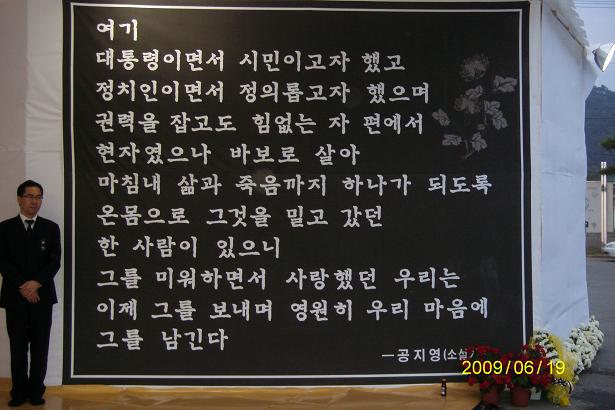 여기
대통령이면서 시민이고자 했고
정치인이면서 정의롭고자 했으며
권력을 잡고도 힘없는 자 편에서
현자였으나 바보로 살아
마침내 삶과 죽음까지 하나가 되도록
온몸으로 그것을 밀고 갔던
한 사람이 있으니
그를 미워하면서 사랑했던 우리는
이제 그를 보내며 영원히 우리 마음에
그를 남긴다
—공지영(소설
2009/06/19